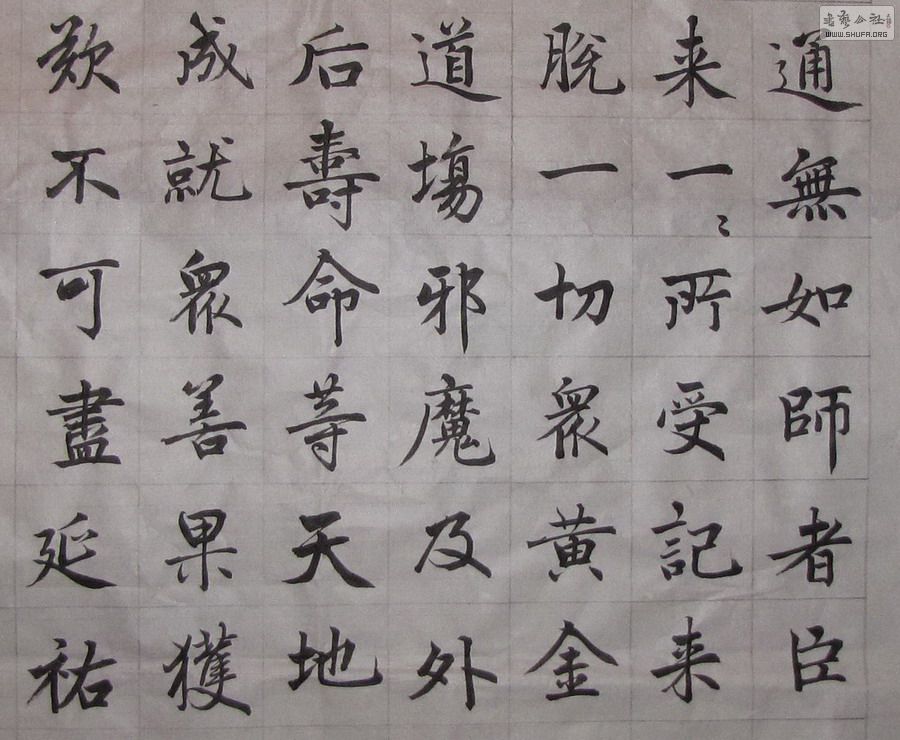 通無如師者臣
来一〻所受記来
脱一切眾黄金
道塲邪魔及外
后壽命等天地
成就眾善果獲
歎不可盡延祐
書藝公社
WWW.SHUFA.ORG